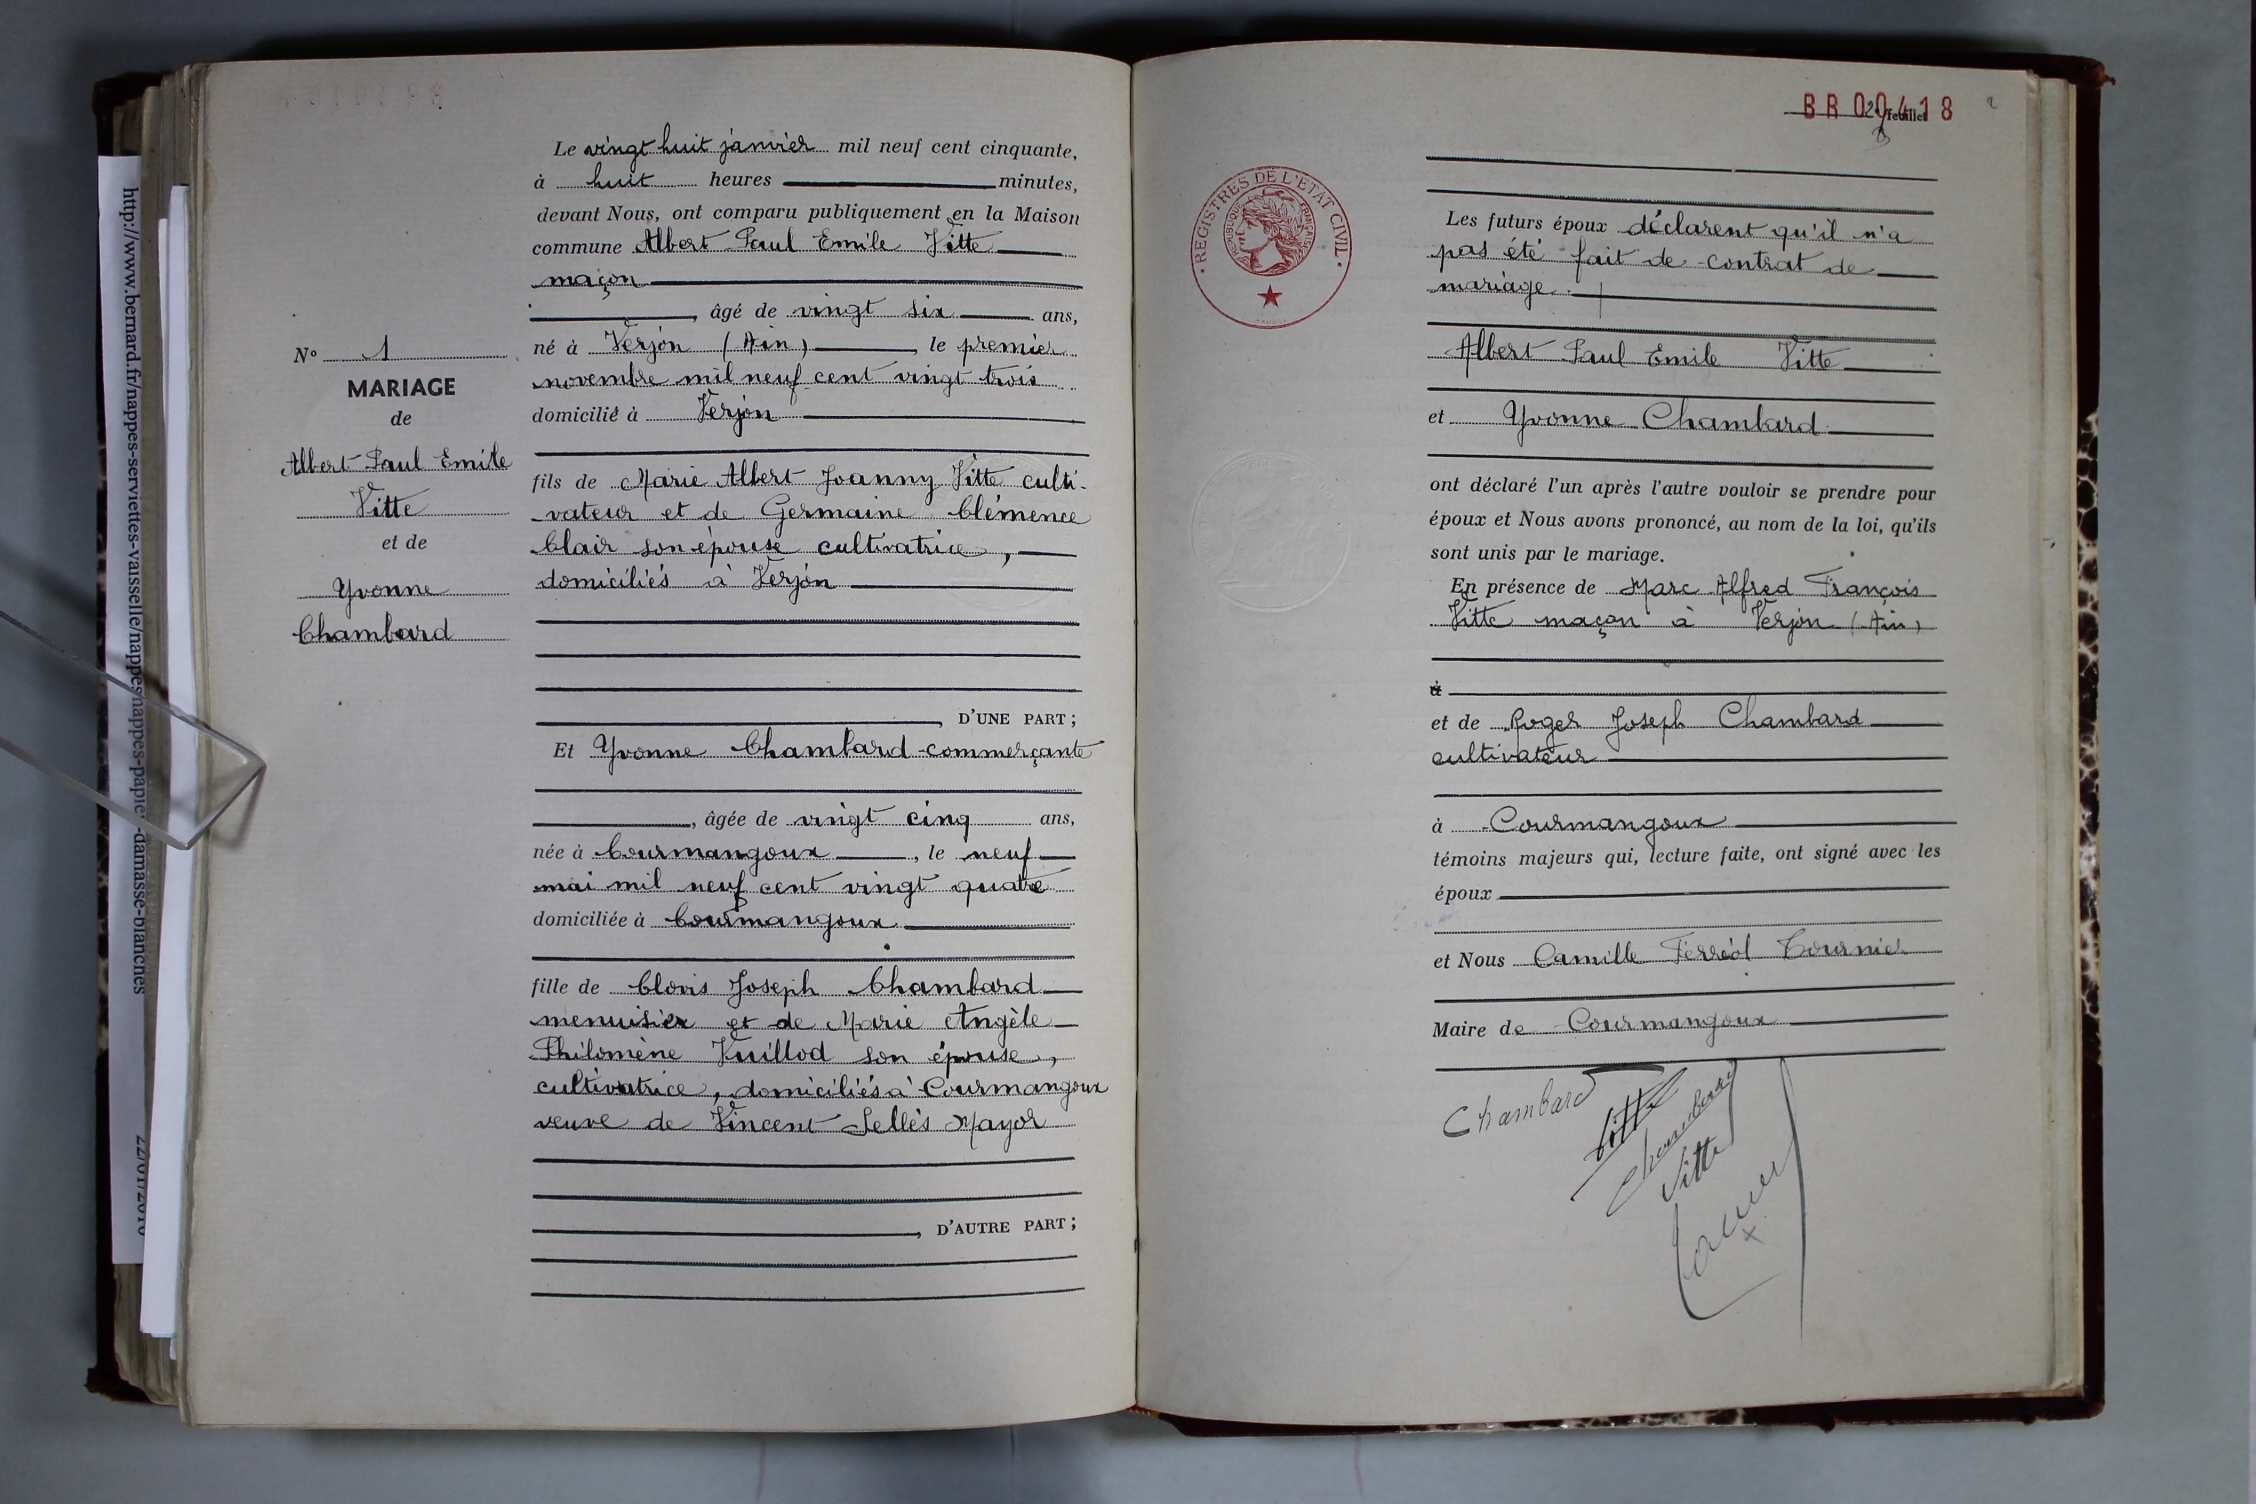 http://www.bernard.fr/nappes-serviettes-vaisselle/nappes/nappes-papier-damasse-blanches
22/01/2016
N° 1
MARIAGE
de
Albert Paul Emile
Vitte
et de
Yvonne
Chambard
Le vingt huit janvier mil neuf cent cinquante,
à huit heures minutes,
devant Nous, ont comparu publiquement en la Maison
commune Albert Paul Emile Vitte
maçon
, âgé de vingt six ans,
né à Verjon (Ain), le premier
novembre mil neuf cent vingt trois
domicilié à Verjon
fils de Marie Albert Joanny Vitte culti-
vateur et de Germaine Clémence
Clair son épouse cultivatrice,
domiciliés à Verjon
D'UNE PART ;
Et Yvonne Chambard commerçante
, âgée de vingt cinq ans,
née à Courmangoux, le neuf
mai mil neuf cent vingt quatre
domiciliée à Courmangoux
fille de Clovis Joseph Chambard
menuisier et de Marie Angèle
Philomène Vuillod son épouse,
cultivatrice, domiciliés à Courmangoux
veuve de Vincent Sellés Mayor
, D'AUTRE PART ;
BR 00418
2 feuillet
REGISTRES DE L'ETAT CIVIL
REPUBLIQUE FRANÇAISE
Les futurs époux déclarent qu'il n'a
pas été fait de contrat de
mariage.
Albert Paul Emile Vitte
et Yvonne Chambard
ont déclaré l'un après l'autre vouloir se prendre pour
époux et Nous avons prononcé, au nom de la loi, qu'ils
sont unis par le mariage.
En présence de Marc Alfred François
Vitte maçon à Verjon (Ain)
à
et de Roger Joseph Chambard
cultivateur
à Courmangoux
témoins majeurs qui, lecture faite, ont signé avec les
époux
et Nous Camille Ferréol Tournier
Maire de Courmangoux
Chambard
Vitte
Chambard
Vitte
Tournier